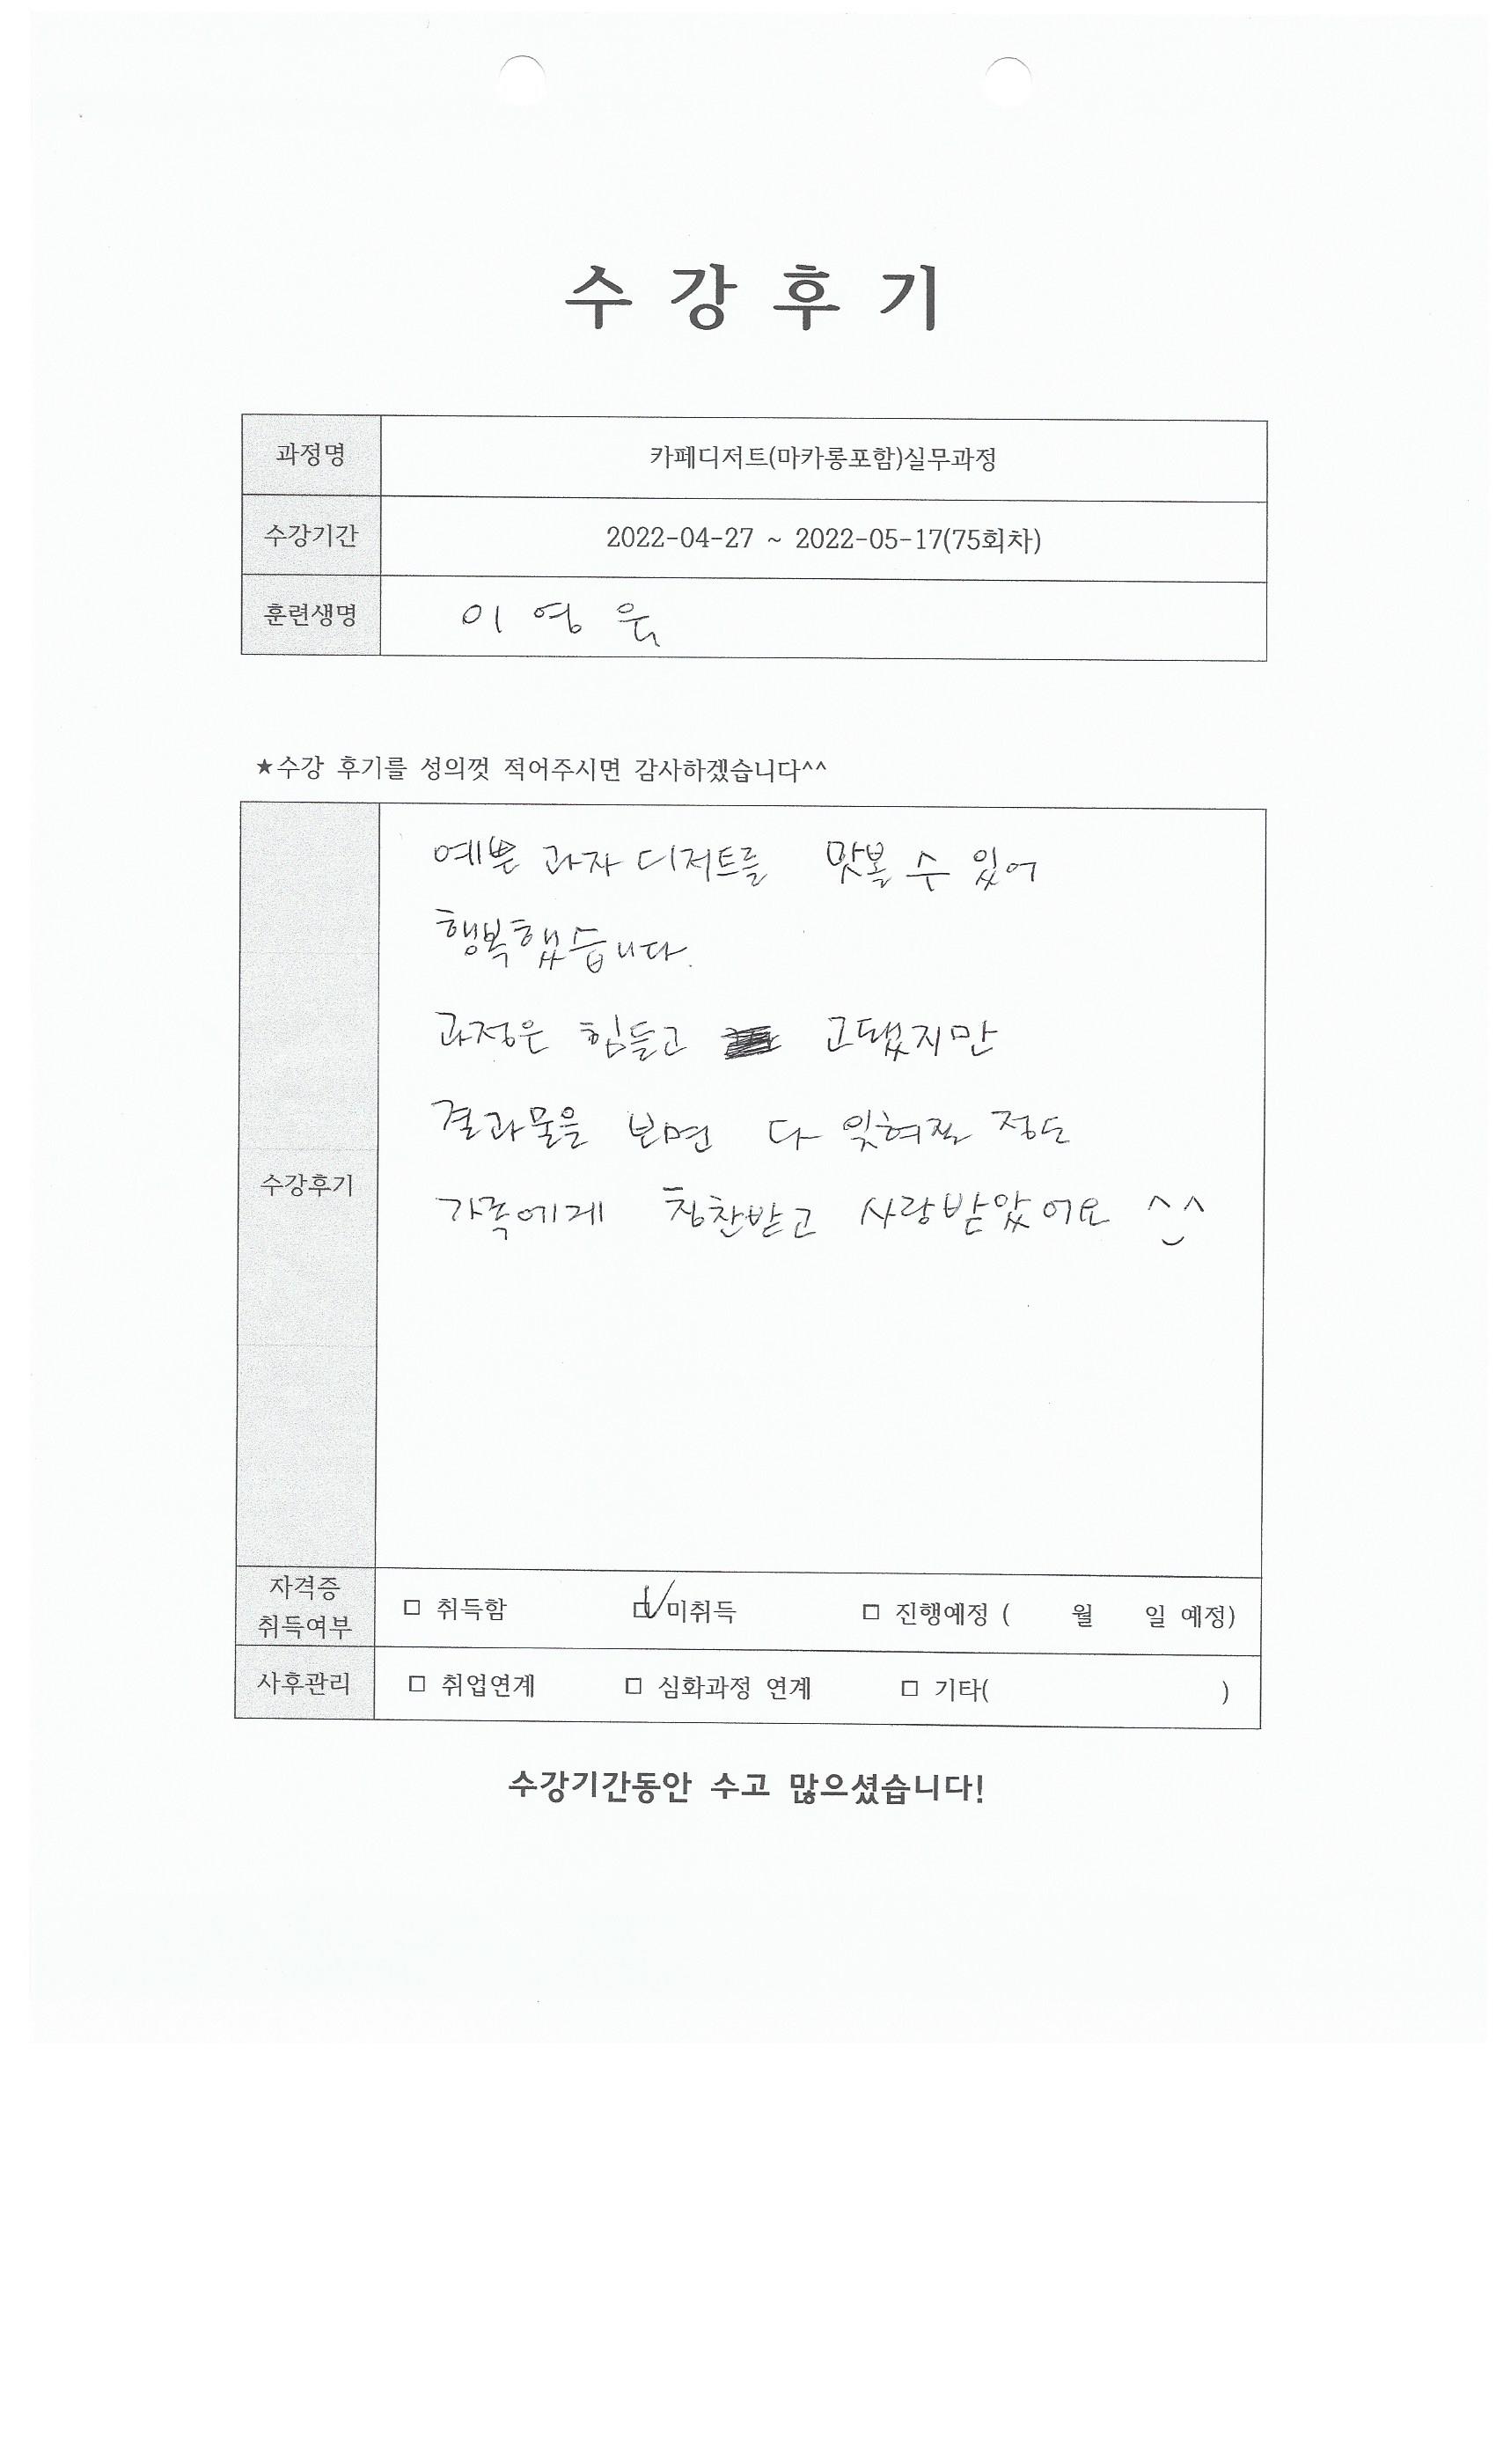 수 강 후 기
과정명 카페디저트(마카롱포함)실무과정
수강기간 2022-04-27 ~ 2022-05-17(75회차)
훈련생명 이 영
★수강 후기를 성의껏 적어주시면 감사하겠습니다^^
예쁜 과자 디저트를 맛볼 수 있어
행복했습니다.
과정은 힘들고 고됐지만
결과물을 보면 다 잊혀질 정도
수강후기
가족에게 칭찬받고 사랑받았어요 ^^
자격증
취득여부
□ 취득함 ☑ 미취득 □ 진행예정 ( 월 일 예정)
사후관리 □ 취업연계 □ 심화과정 연계 □ 기타( )
수강기간동안 수고 많으셨습니다!